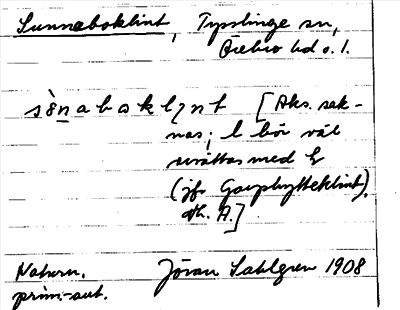 Sunnaboklint, Tysslinge sn,
Örebro hd o. l.
sènaboklynt [Aks. sak-
nas; l bör väl
ersättas med
(jfr Garphytteklint).
dh. A.]
Naturn. Jöran Sahlgren 1908
prim.-aut.